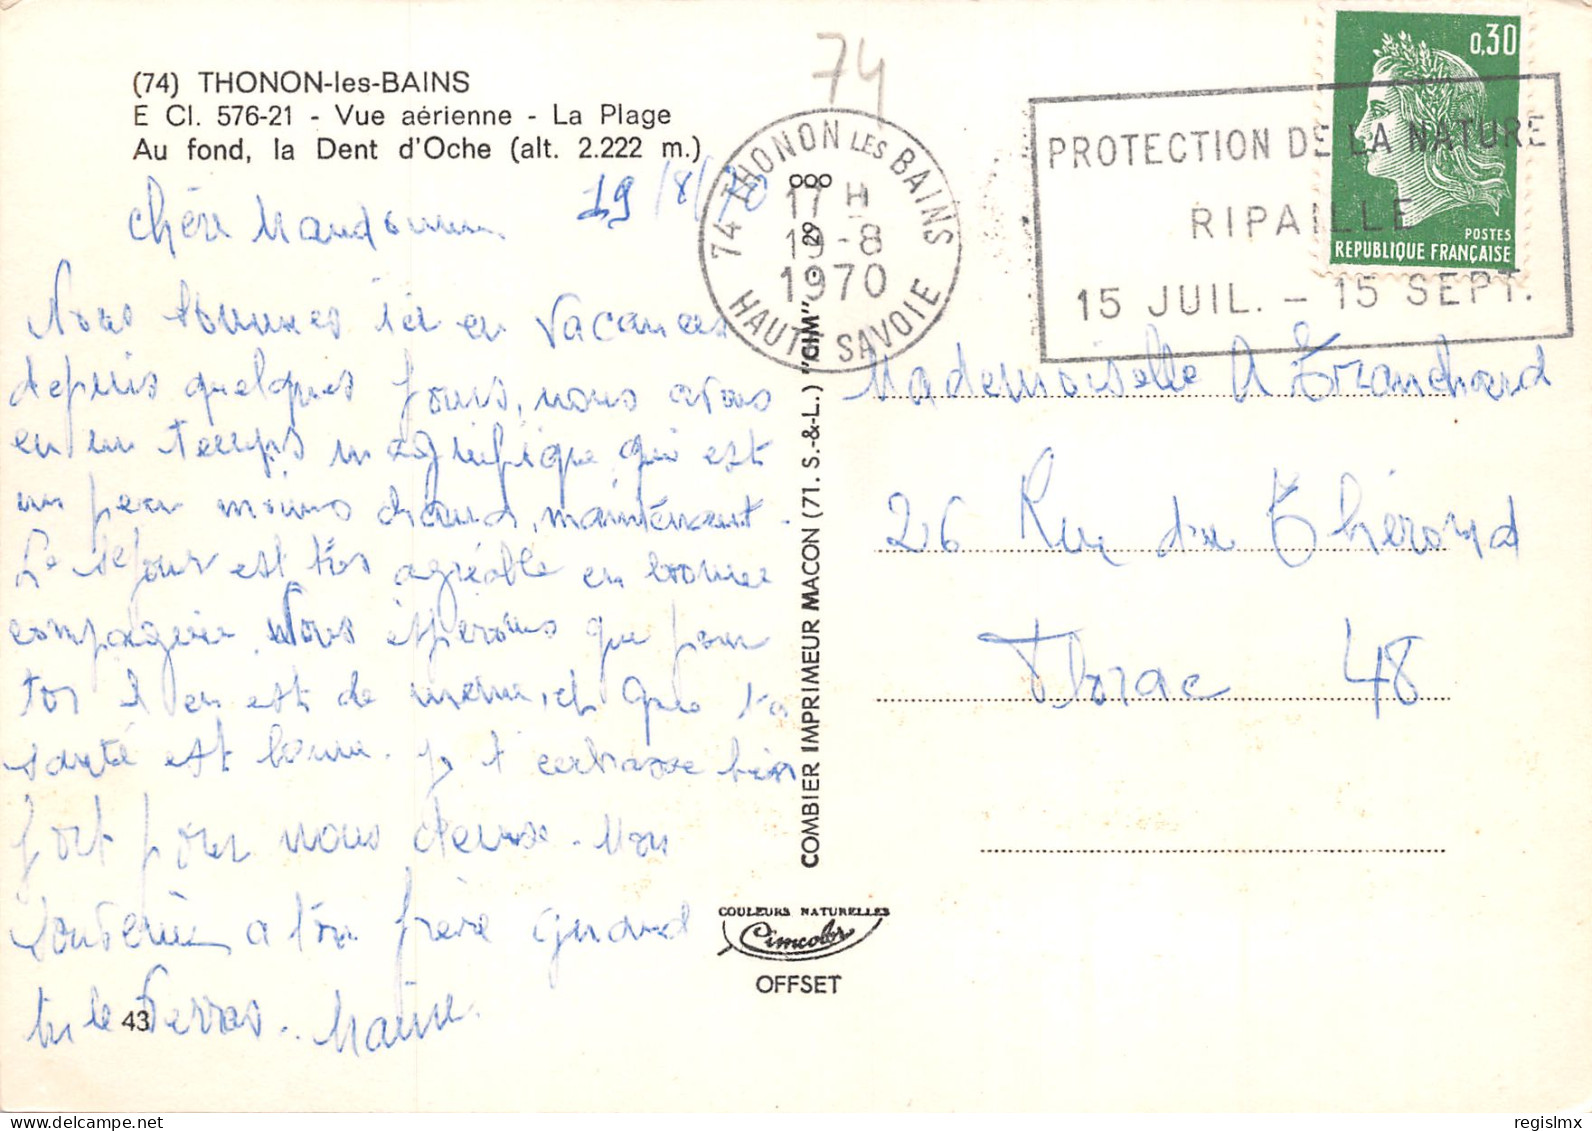 (74) THONON-les-BAINS
E Cl. 576-21 - Vue aérienne - La Plage
Au fond, la Dent d'Oche (alt. 2.222 m.)
74
19/8/70
74 THONON LES BAINS
17 H
19-8
1970
HAUTE SAVOIE
PROTECTION DE LA NATURE
RIPAILLE
15 JUIL. - 15 SEPT.
0,30
POSTES
REPUBLIQUE FRANÇAISE
Chère
Nous sommes ici en vacances
depuis quelques jours, nous avons
eu un temps magnifique, qui est
un peu moins chaud, maintenant.
Le séjour est très agréable en bonne
compagnie. Nous espérons que pour
toi il en est de même, et que ta
santé est bonne. Je t'embrasse bien
fort pour nous deux. Mon
souvenir a ton frère quand
tu le verras..
43
COMBIER IMPRIMEUR MACON (71. S.-&-L.) "CIM"
COULEURS NATURELLES
Cimcolor
OFFSET
Mademoiselle A Tranchard
26 Rue du Thérond
Florac 48
regislmx